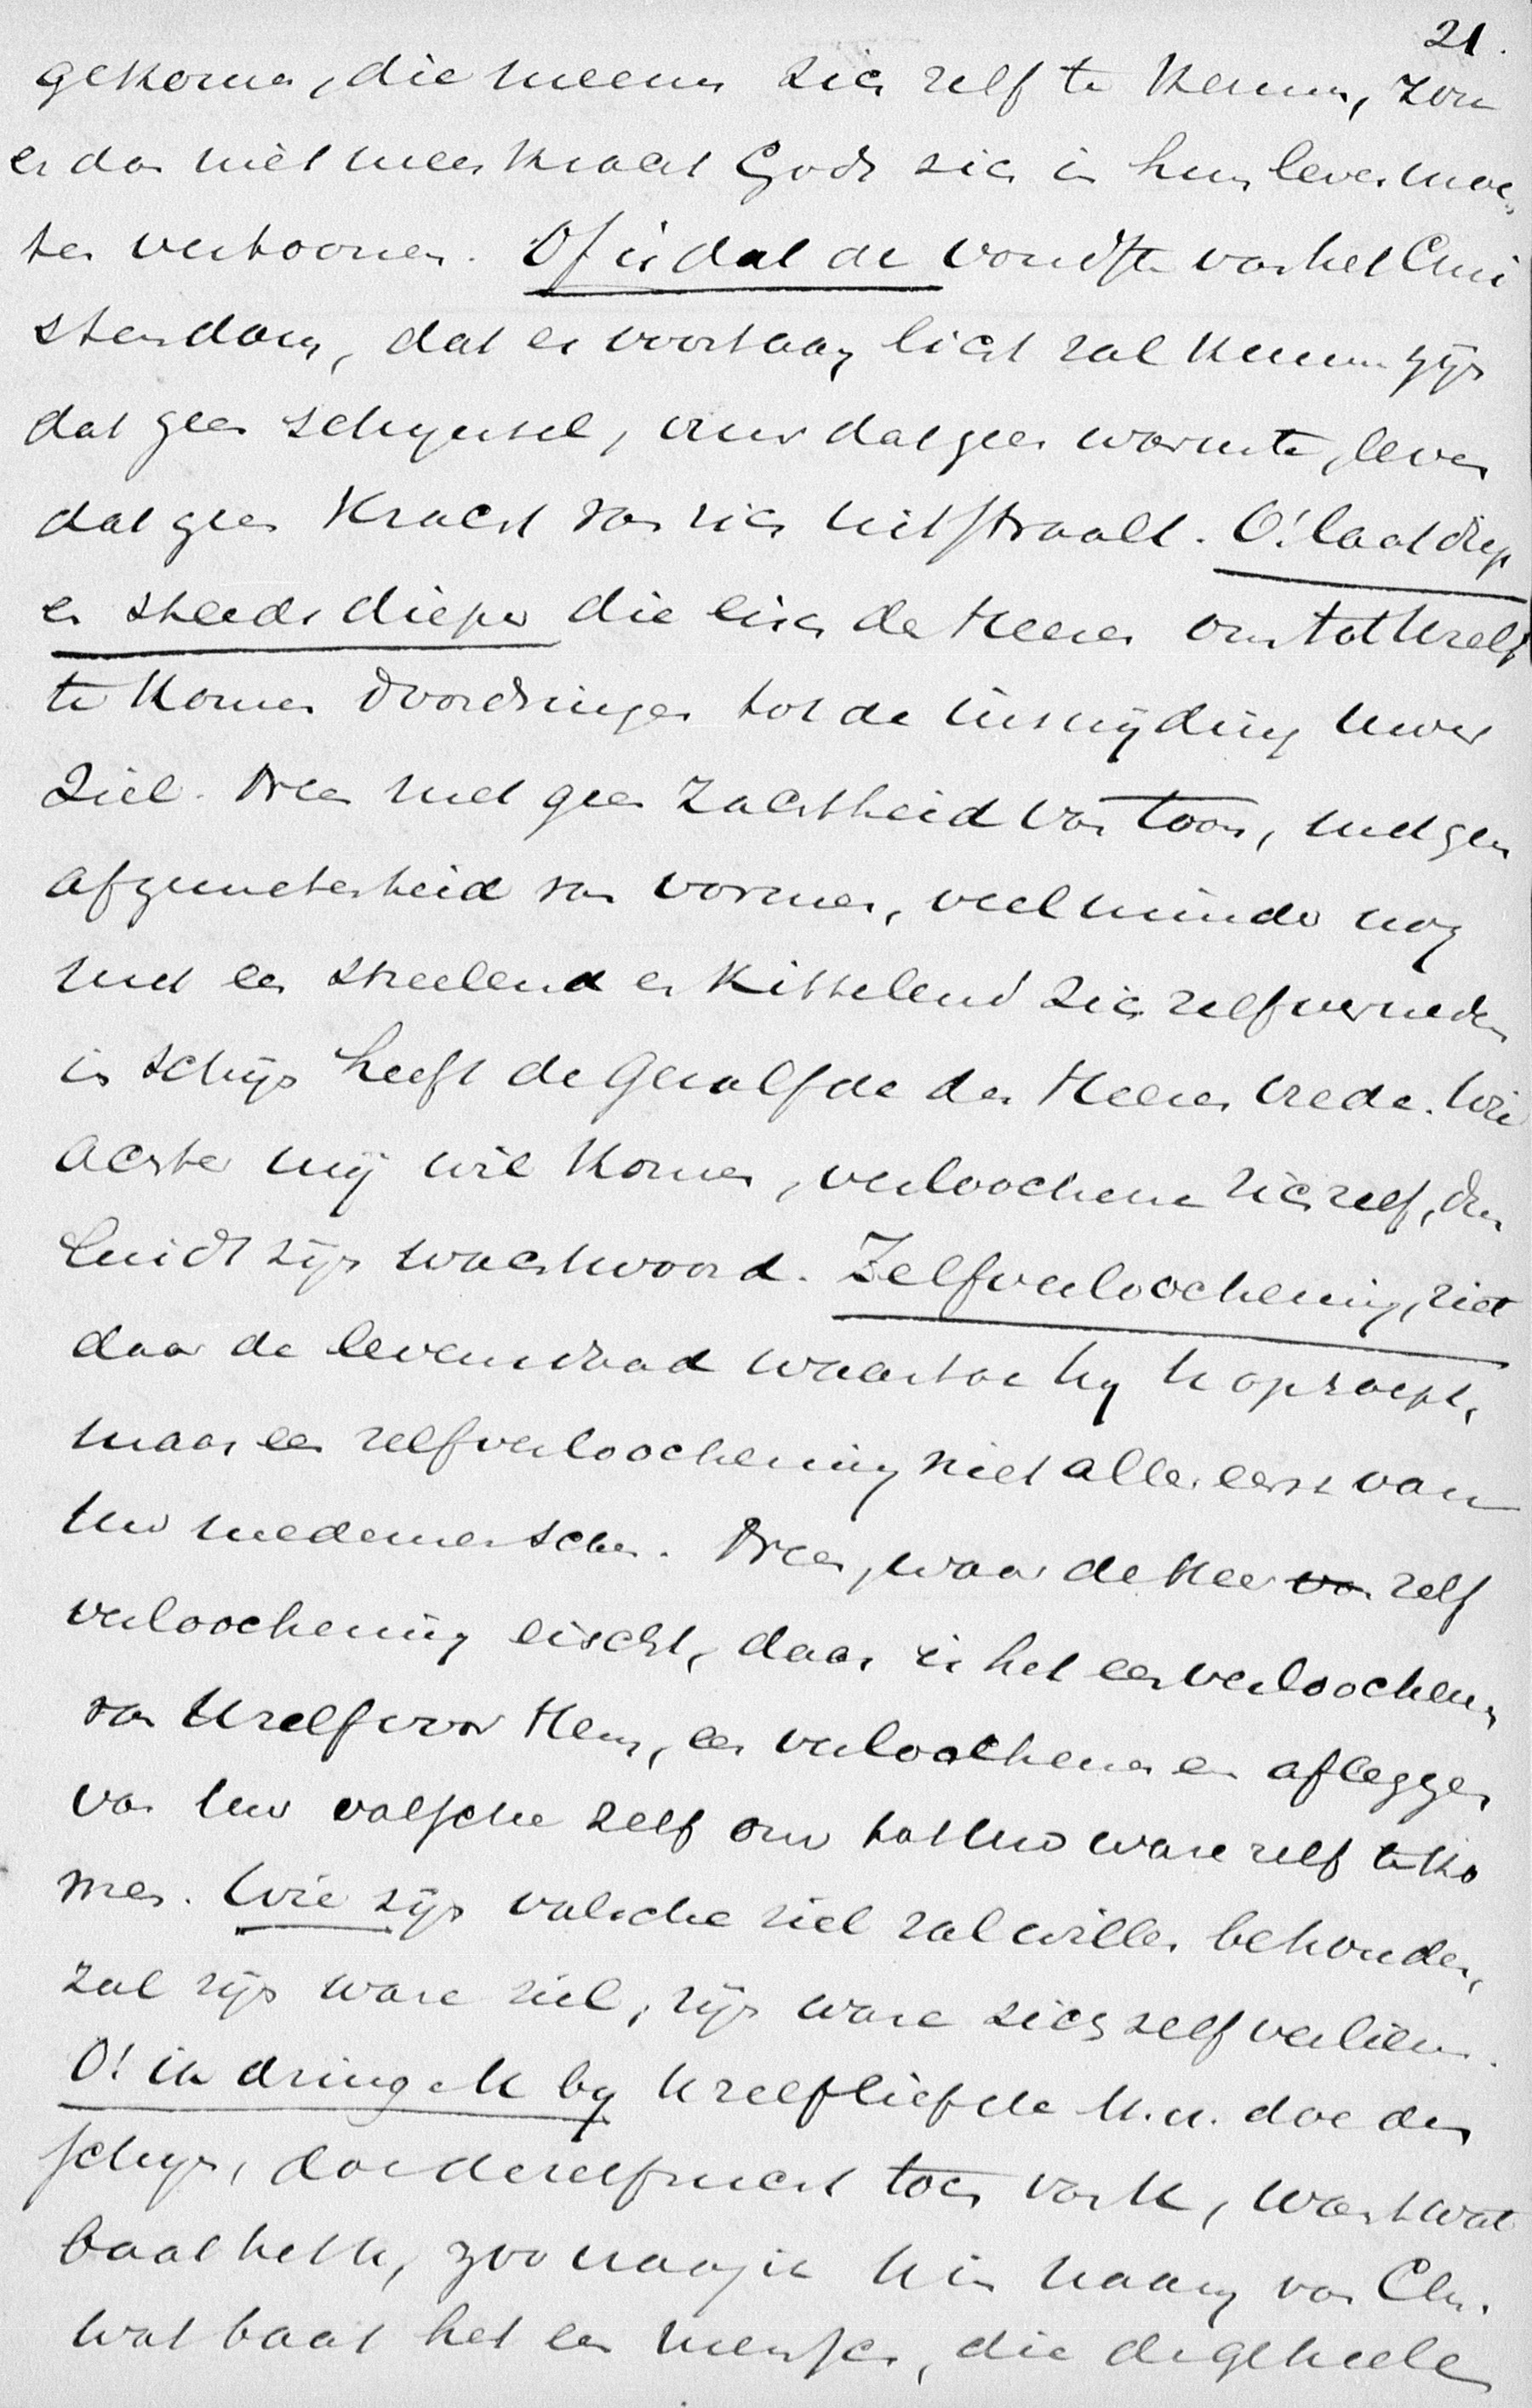 21.
gekomen, die meenen zich zelf te kennen, zou
er dan niet meer kracht Gods zich in hun leven moe-
ten vertoonen. Of is dat de vondste van het Chri
stendom, dat er voortaan licht zal kunnen zijn
dat geen schijnsel, vuur dat geen warmte, leven
dat geen kracht van zich uitstraalt. O! laat diep
en steeds dieper die eisch des Heeren om tot Uzelf
te komen doordringen tot de insnijding uwer
Ziel. Neen met geen zachtheid van toon, met geen
afgemetenheid van vormen, veel minder nog
met een streelend en kittelend zich zelf vermeden
in schijn heeft de Gezalfde des Heeren vrede. Wie
achter mij wil komen, verloochene zichzelf, dus
luidt zijn wachtwoord. Zelfverloochening, ziet
daar de levensdaad waartoe hij U oproept,
maar een zelfverloochening niet allereerst van
Uw medemenschen. Neen, waar de Heer van zelf
verloochening eischt, daar is het een verloochenen
van Uzelf voor Hem, een verloochenen en afleggen
van Uw valsche zelf om tot Uw ware zelf te ko
men. Wie zijn valsche ziel zal willen behouden,
zal zijn ware ziel, zijn ware zich zelf verliezen.
O! ik dring U by Uzelfliefde M.H. doe den
schijn, doe de zelfzucht toch van U, want wat
baat het U, zoo vraag ik U in naam van Chr.
wat baat het een mensch, die de geheele